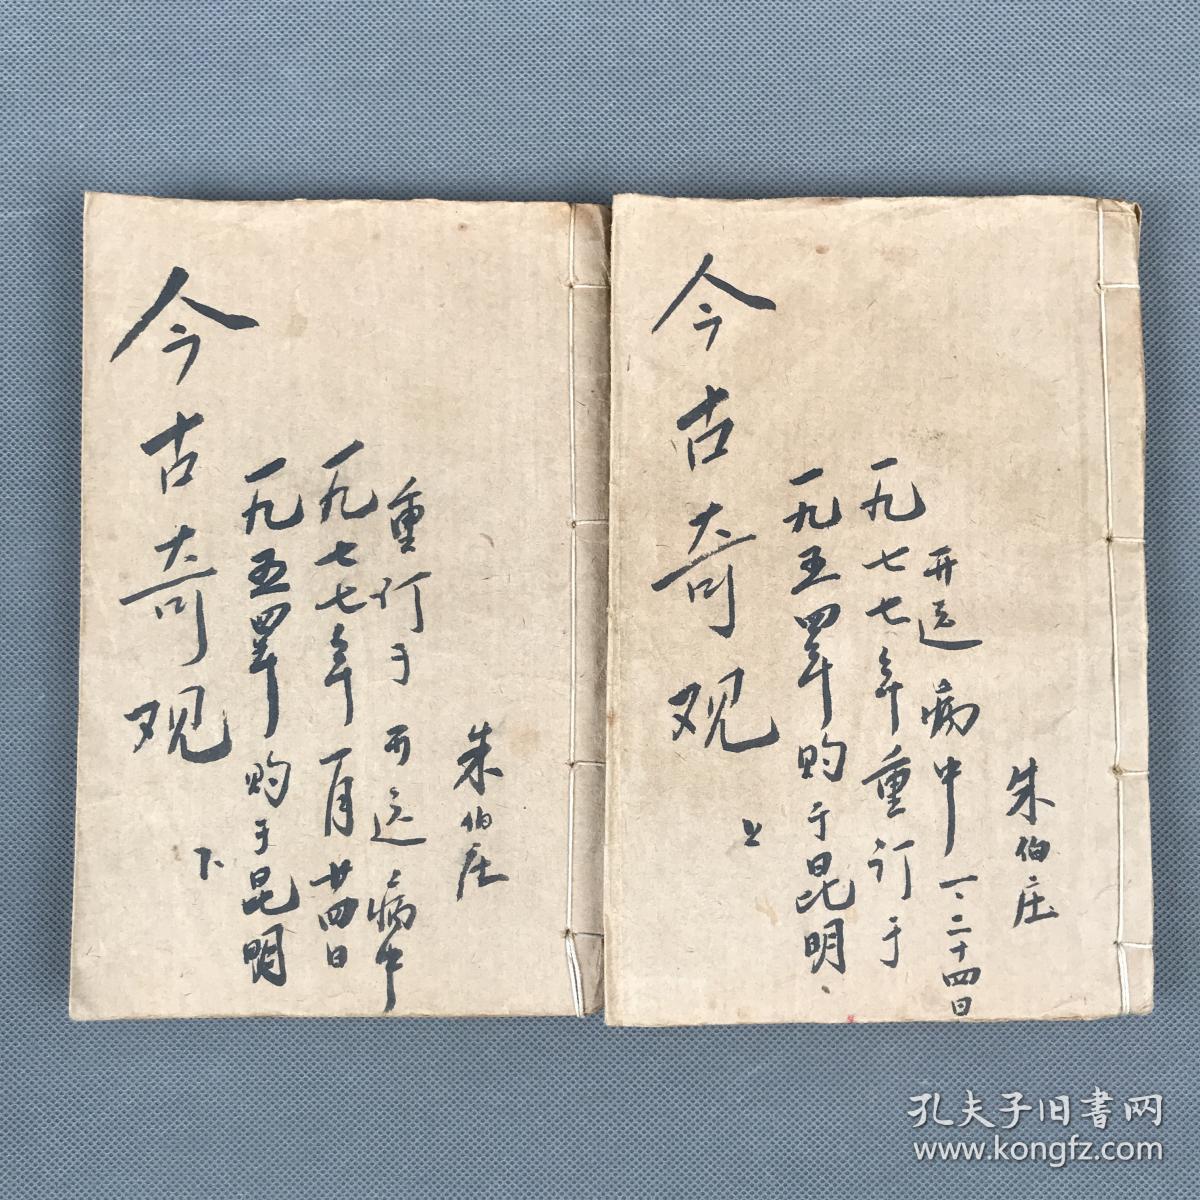 今古奇观
下
一九五四年购于昆明
一九七七年一月廿四日
重订于开远病中
朱伯庄
今古奇观
上
一九五四年购于昆明.
一九七七年重订于
开远病中一、二十四日
朱伯庄
孔夫子旧书网
www.kongfz.com